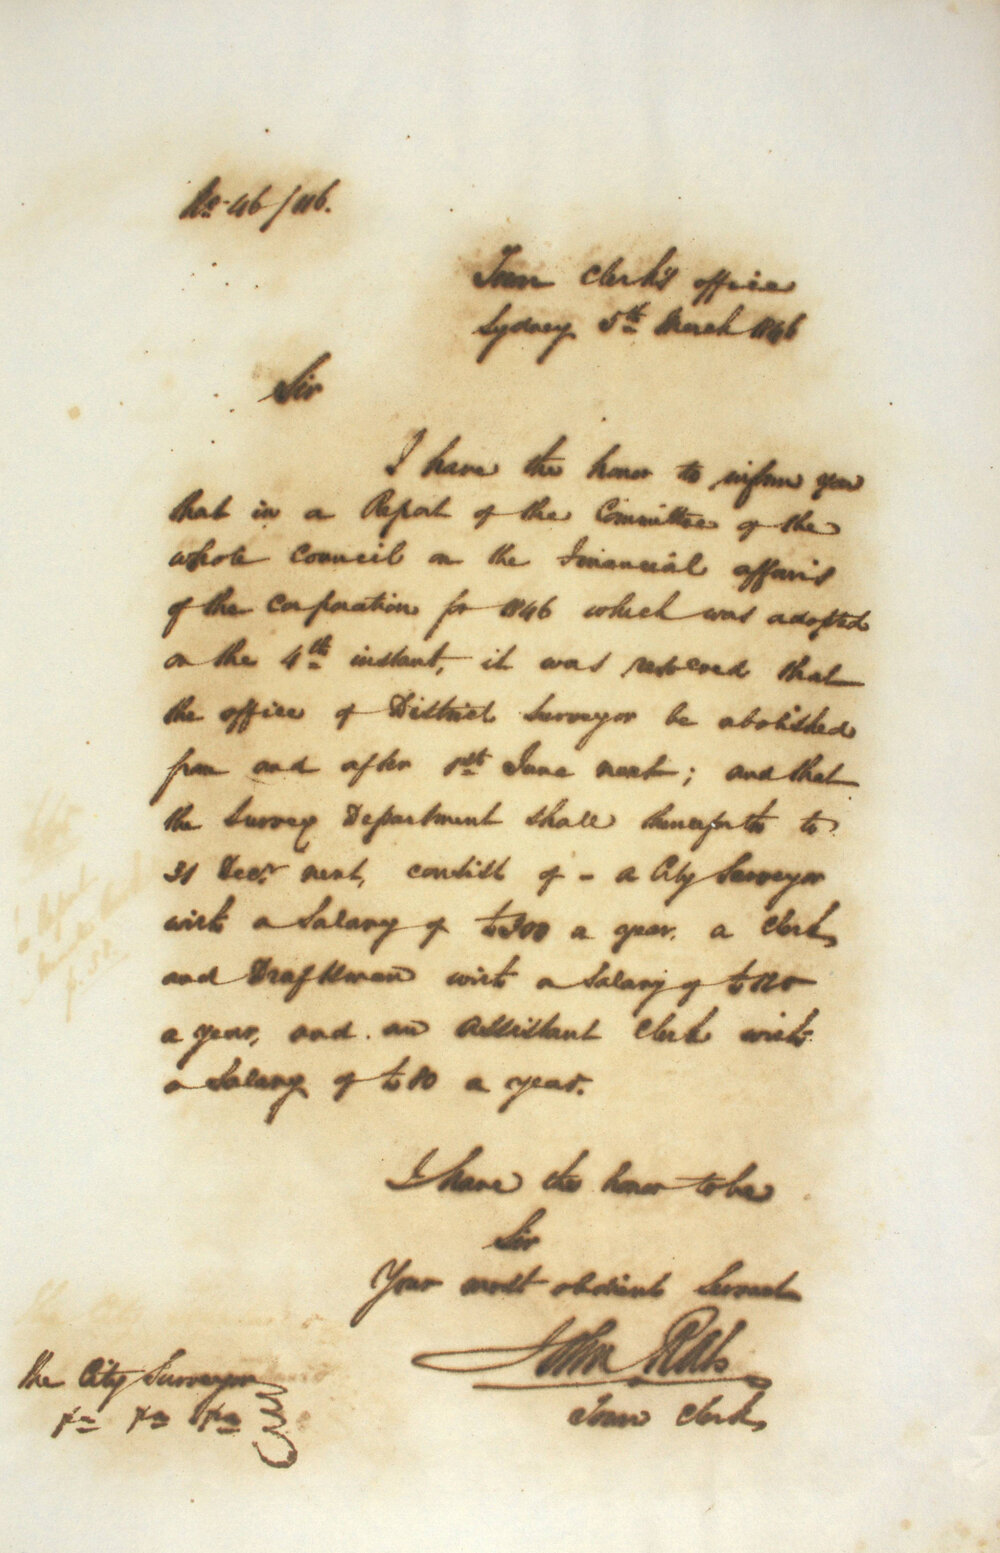 No. 46/116.
Town Clerk's office
Sydney 5th March 1846
Sir
I have the honor to inform you
that in a Report of the Committee of the
whole Council on the Financial affairs
of the Corporation for 1846 which was adopted
on the 4th instant, it was resolved that
the office of District Surveyor be abolished
from and after 1st June next; and that
the Survey Department shall thenceforth to
31 Decr. next, consist of - a City Surveyor
with a Salary of £300 a year, a Clerk
and Draftsman with a Salary of £120
a year, and an Assistant Clerk with
a Salary of £80 a year.
I have the honor to be
Sir
Your most obedient Servant
John
Town Clerk
the City Surveyor